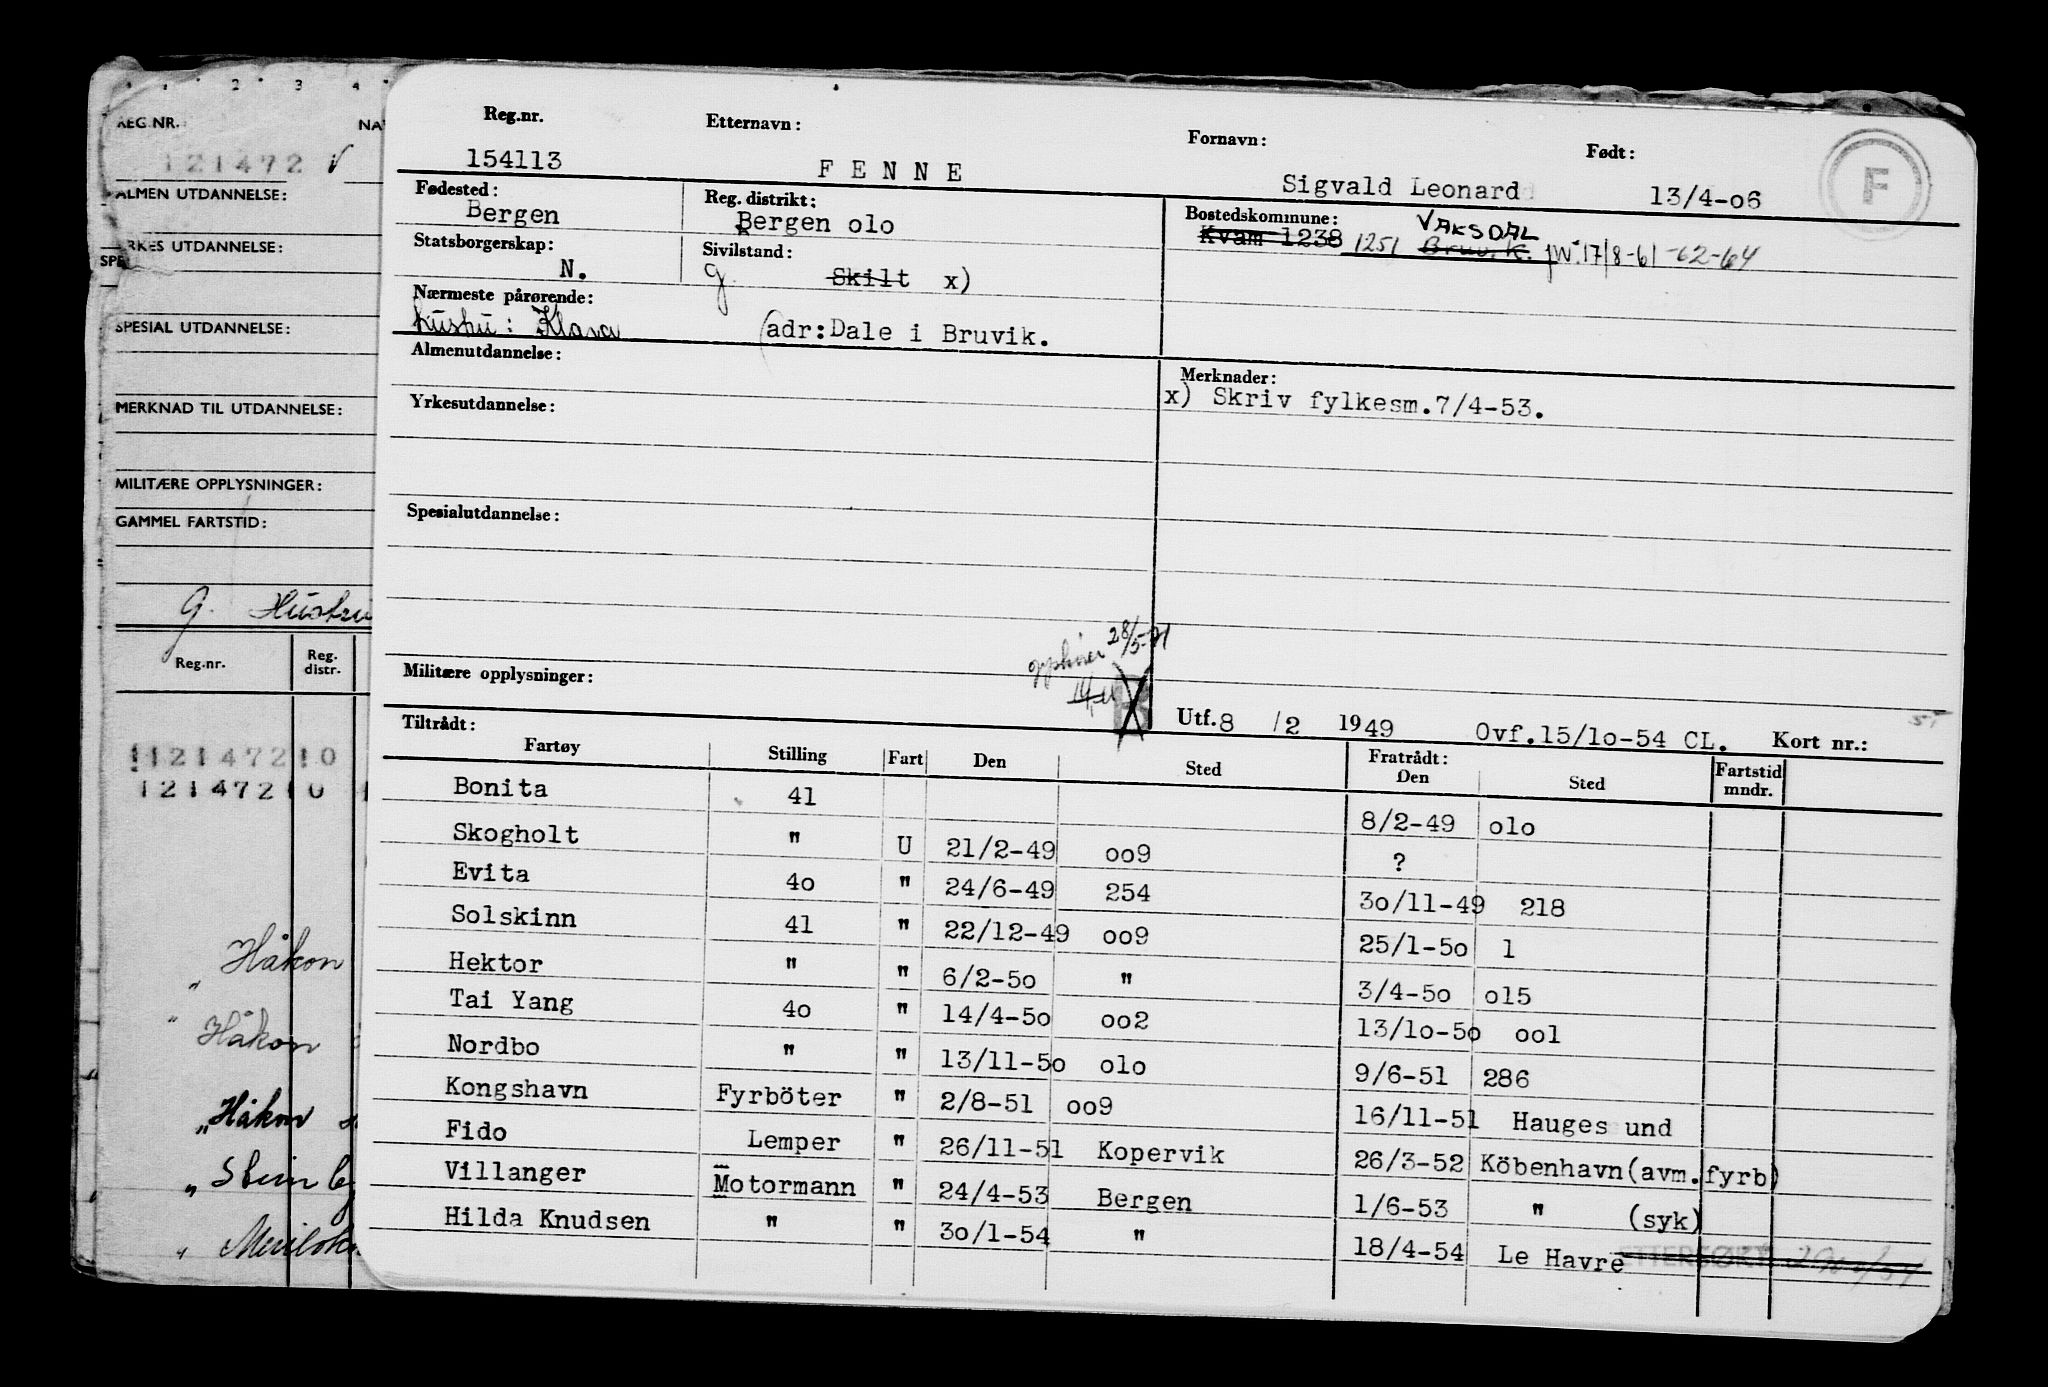 2 3 4
REG.NR. NA
121472 V
ALMEN UTDANNELSE:
RKES UTDANNELSE:
SPE
SPESIAL UTDANNELSE:
MERKNAD TIL UTDANNELSE:
MILITÆRE OPPLYSNINGER:
GAMMEL FARTSTID:
g. Hustru
Reg.nr. Reg. distr.
121472 10
121472 0
" Håkon
" Håkon
" Håkon
"
"
Reg.nr. Etternavn: Fornavn: Født:
154113 F E N N E Sigvald Leonard 13/4-o6
F
Fødested: Reg. distrikt: Bostedskommune:
Bergen Bergen olo Kvam 1238 1251 Bruvik. VAKSDAL 17/8-61 -62-64
Statsborgerskap: Sivilstand:
N. g Skilt x)
Nærmeste pårørende:
hustru: Klara (adr:Dale i Bruvik.
Almenutdannelse: Merknader:
x) Skriv fylkesm.7/4-53.
Yrkesutdannelse:
Spesialutdannelse:
28/5-71
Militære opplysninger:
Utf.8 /2 1949 Ovf.15/lo-54 CL. Kort nr.:
Tiltrådt: Fratrådt:
Fartøy Stilling Fart Den Sted Den Sted Fartstid mndr.
Bonita 41 8/2-49 olo
Skogholt " U 21/2-49 oo9 ?
Evita 4o " 24/6-49 254 3o/11-49 218
Solskinn 41 " 22/12-49 oo9 25/1-5o 1
Hektor " " 6/2-5o " 3/4-5o o15
Tai Yang 4o " 14/4-5o oo2 13/1o-5o ool
Nordbo " " 13/11-5o olo 9/6-51 286
Kongshavn Fyrböter " 2/8-51 oo9 16/11-51 Hauges und
Fido Lemper " 26/11-51 Kopervik 26/3-52 Köbenhavn(avm.fyrb)
Villanger Motormann " 24/4-53 Bergen 1/6-53 " (syk)
Hilda Knudsen " " 3o/1-54 " 18/4-54 Le Havre
ETTERSØKT